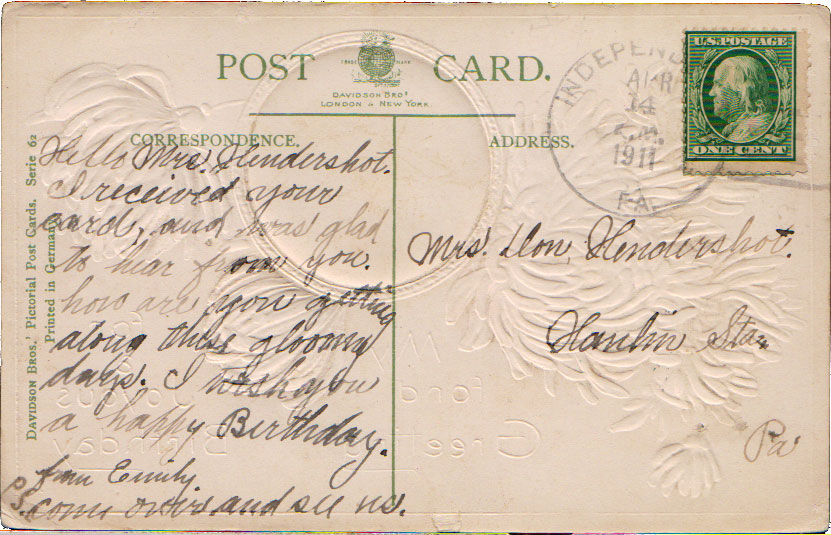 POST CARD.
TRADE MARK
DAVIDSON BROS
LONDON & NEW YORK.
CORRESPONDENCE.
ADDRESS.
Davidson Bros.' Pictorial Post Cards. Serie 62
Printed in Germany
Hello Mrs. Hendershot.
I received your
card, and was glad
to hear from you.
how are you getting
along these gloomy
days. I wish you
a happy Birthday.
from Emily
P.S. come over and see us.
INDEPEND
APR
14
1911
PA
U.S. POSTAGE
ONE CENT
Mrs. Don, Hendershot.
Hanlin Sta.
Pa
fond
Joyous
Greeting
Birthday